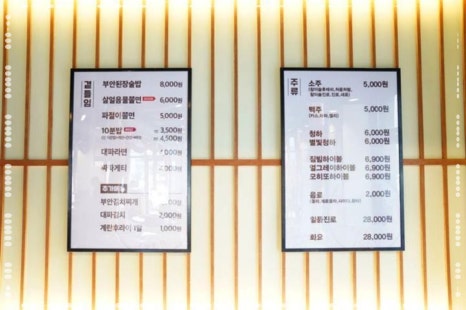 곁들임
부안된장술밥 8,000원
살얼음물쫄면 6,000원
파절이쫄면 5,000원
10분밥 3,500원
4,500원
대파라면 4,000원
4,000원
부안김치찌개
대파김치 2,000원
계란후라이 1알 1,000원
주류
소주 5,000원
맥주 5,000원
(카스, 테라, 켈리)
청하 6,000원
별빛청하 6,000원
짐빔하이볼 6,900원
얼그레이하이볼 6,900원
모히또하이볼 6,900원
음료 2,000원
일품진로 28,000원
화요 28,000원